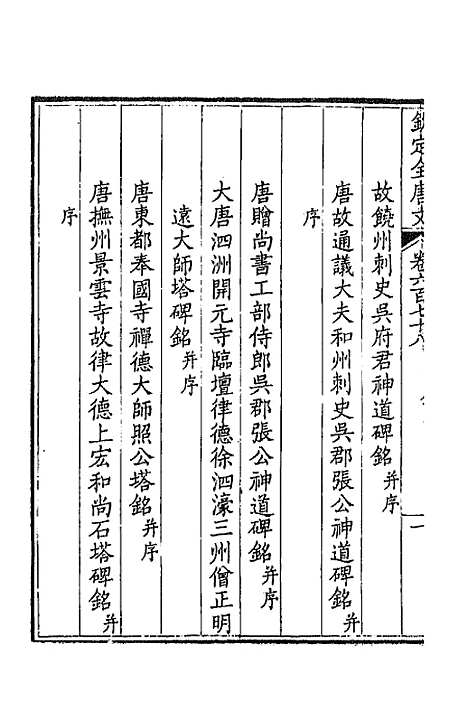 欽定全唐文
卷六百七十八
一
故饒州刺史吳府君神道碑銘并序
唐故通議大夫和州刺史吳郡張公神道碑銘并
序
唐贈尚書工部侍郎吳郡張公神道碑銘并序
大唐泗洲開元寺臨壇律德徐泗濠三州僧正明
遠大師塔碑銘并序
唐東都奉國寺禪德大師照公塔銘并序
唐撫州景雲寺故律大德上宏和尚石塔碑銘并
序